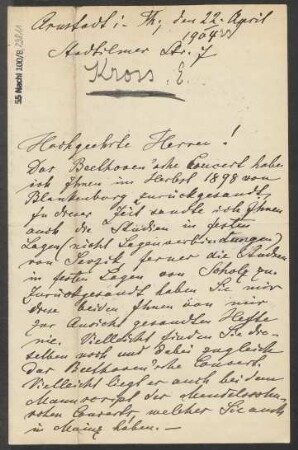 55 Nachl 100/B,23811
Arnstadt i. Th., den 22. April
1904
Stadtilmer Str. 7
Kross, E.
Hochgeehrte Herren!
Das Beethoven'sche Concert habe
ich Ihnen im Herbst 1898 von
Blankenburg zurückgesandt,
In dieser Zeit sandte ich Ihnen
auch die Studien in festen
Lagen (nicht Lagenverbindungen)
von Sevzik, ferner die Studien
in festen Lagen von Scholz zu.
Zurückgesandt haben Sie mir
diese beiden Ihnen von mir
zur Ansicht gesandten Hefte
nie. Vielleicht finden Sie die-
selben noch und dabei zugleich
das Beethoven'sche Concert.
Vielleicht liegt es auch bei dem
Manuscript des Mendelssohn-
schen Concerts, welches Sie auch
in Mainz haben. —